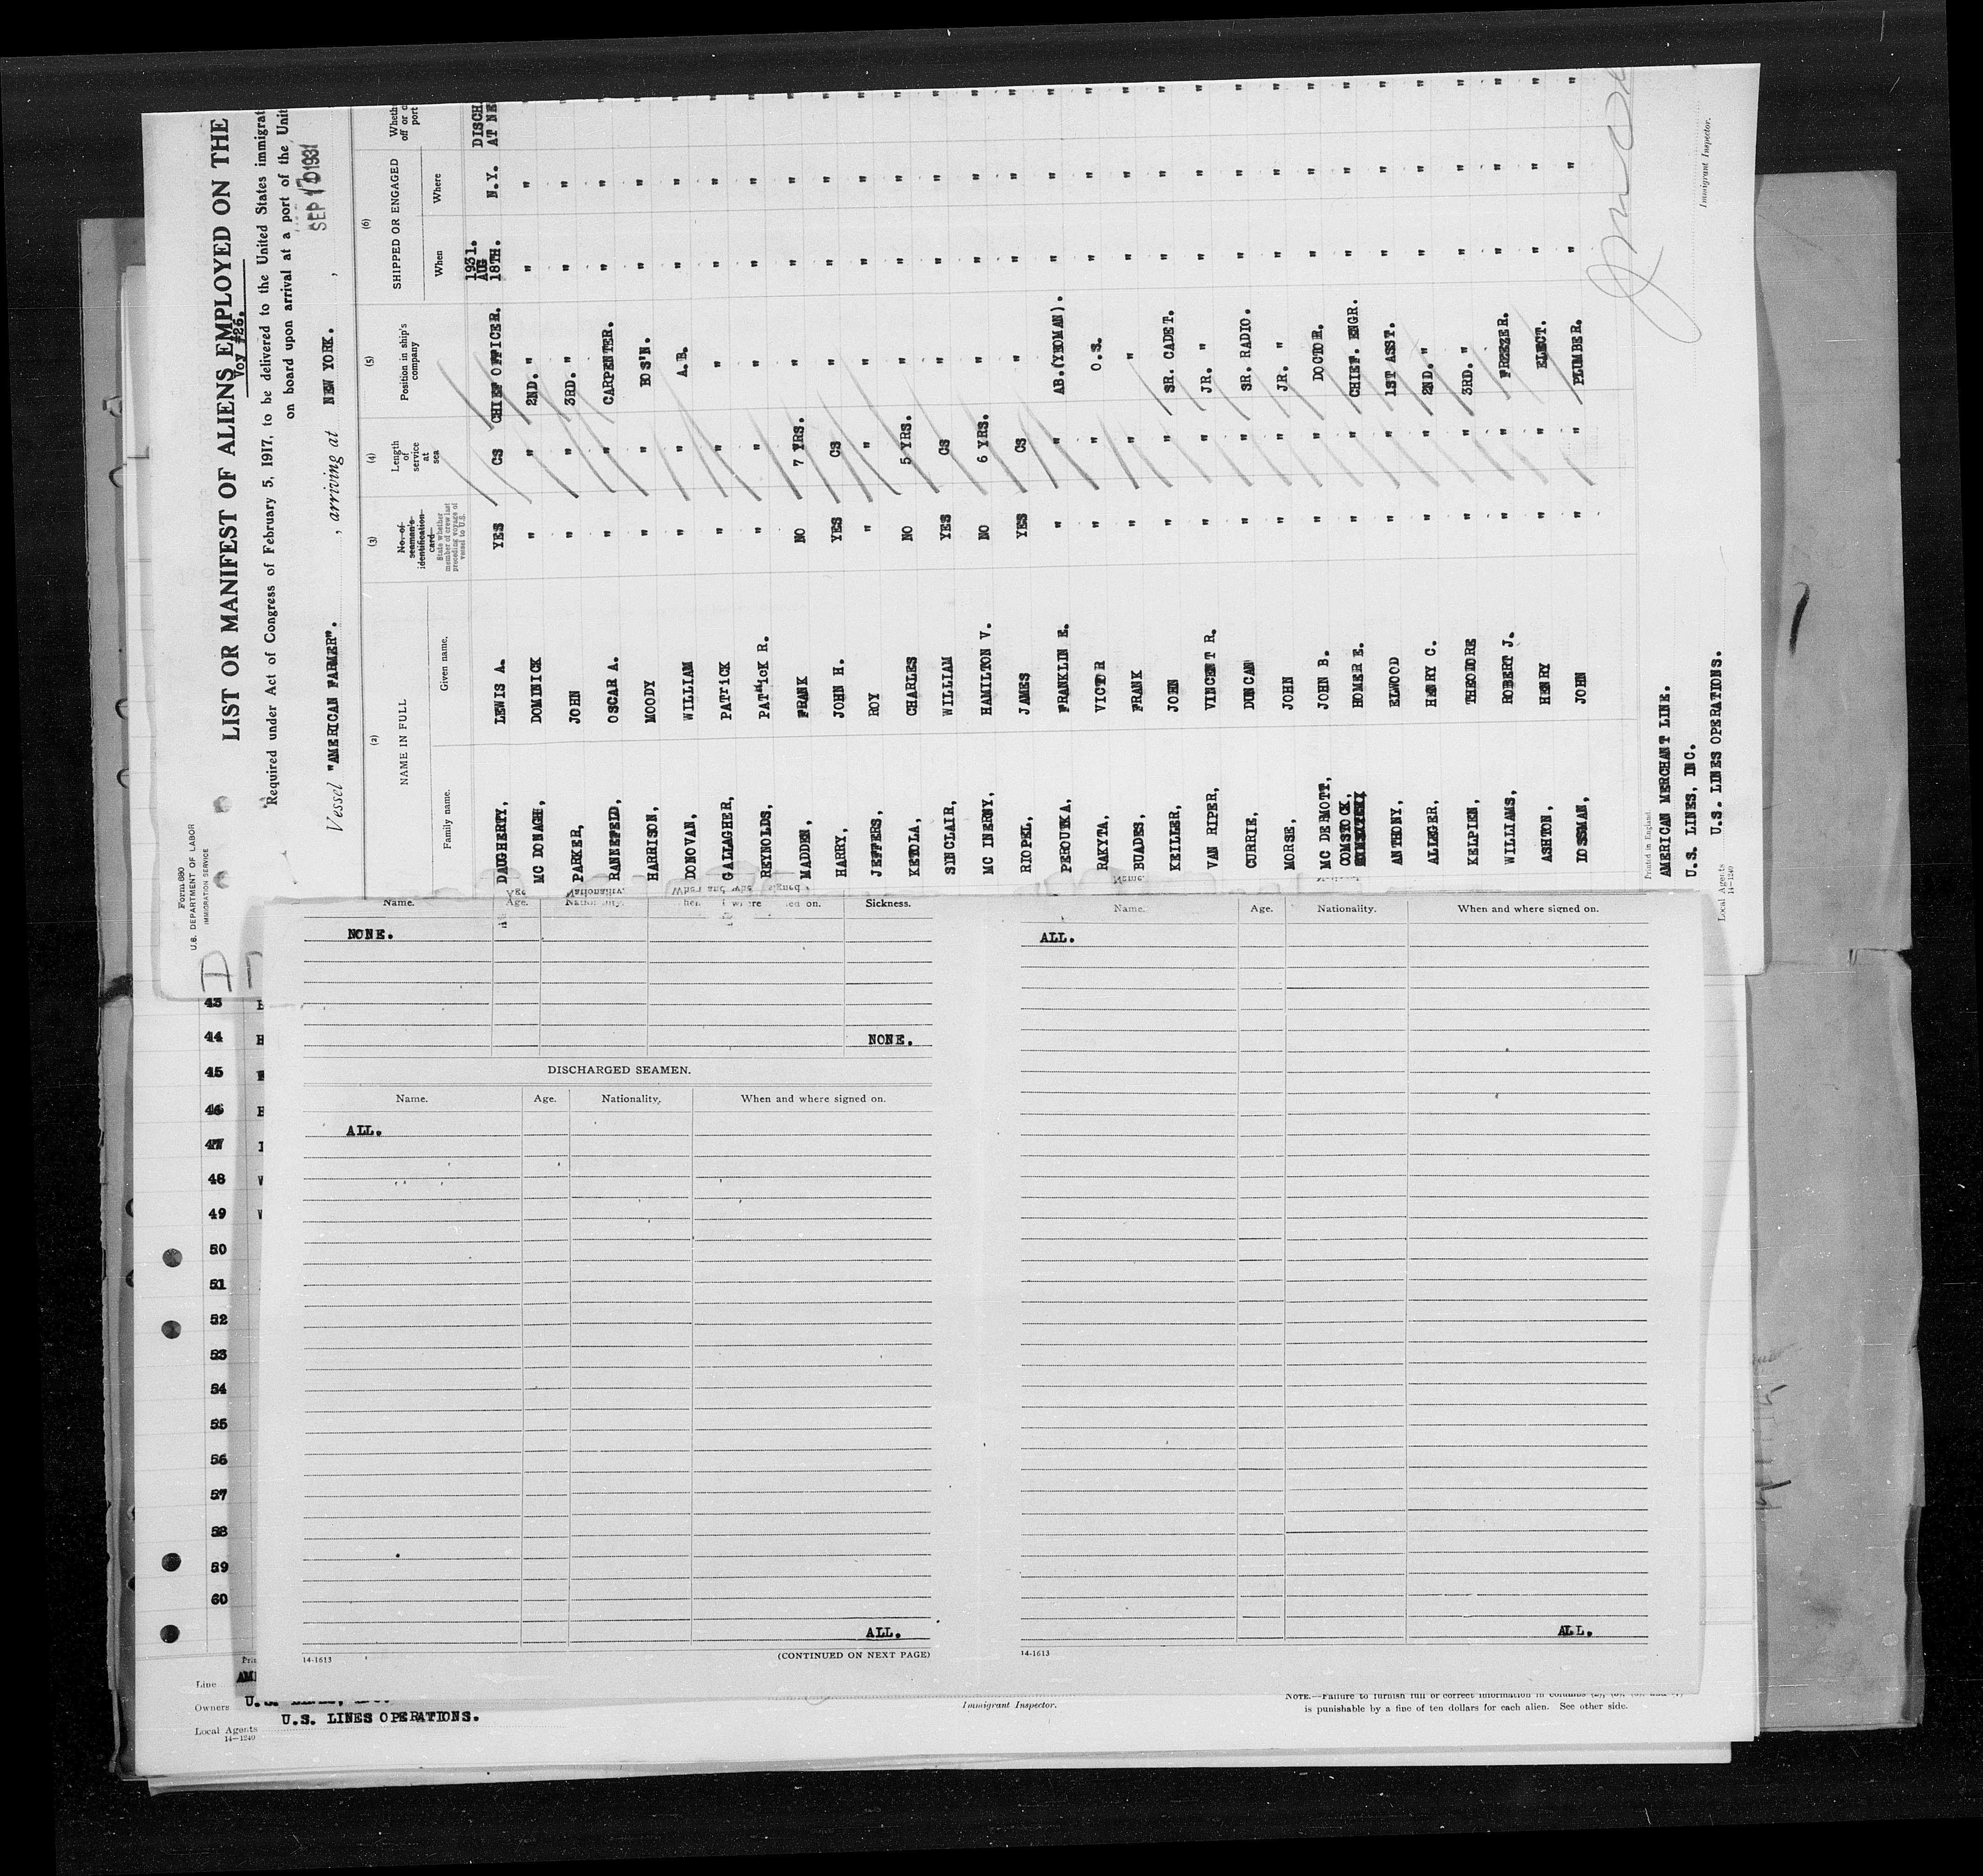 Form 680
U.S. DEPARTMENT OF LABOR
IMMIGRATION SERVICE
LIST OR MANIFEST OF ALIENS EMPLOYED ON THE
Voy #26.
Required under Act of Congress of February 5, 1917, to be delivered to the United States immigrat
on board upon arrival at a port of the Unit
SEP 1931
Vessel "AMERICAN FARMER". , arriving at NEW YORK. ,
(2) (3) (4) (5) (6)
NAME IN FULL
Family name. Given name.
No. of seaman's identification card
State whether member of crew last preceding voyage of vessel to U.S.
Length of service at sea
Position in ship's company
SHIPPED OR ENGAGED
When Where
Wheth off or port
DAUGHERTY, LEWIS A. YES CS CHIEF OFFICER. 1931. AUG 18TH. N.Y. DISCH AT NE
MC DONAGH, DOMINICK " " 2ND. " " " "
PARKER, JOHN " " 3RD. " " " "
RANNEFELD, OSCAR A. " " CARPENTER. " " "
HARRISON, MOODY " " BOS'N. " " "
DONOVAN, WILLIAM " " A.B. " " "
GALLAGHER, PATRICK " " " " " "
REYNOLDS, PATRICK R. " " " " " "
MADDEN, FRANK NO 7 YRS. " " " "
HARRY, JOHN H. YES CS " " " "
JEFFERS, ROY " " " " " "
KETOLA, CHARLES NO 5 YRS. " " " "
SINCLAIR, WILLIAM YES CS " " " "
MC INERNY, HAMILTON V. NO 6 YRS. " " " "
RIOPEL, JAMES YES CS " " " "
PEROUTKA, FRANKLIN E. " " AB.(YEOMAN). " " "
RAKYTA, VICTOR " " O.S. " " "
BUADES, FRANK " " " " " "
KEILLER, JOHN " " SR. CADET. " " "
VAN RIPER, VINCENT R. " " JR. " " " "
CURRIE, DUNCAN " " SR. RADIO. " " "
MORSE, JOHN " " JR. " " " "
MC DERMOTT, JOHN B. " " DOCTOR. " " "
COMSTOCK, HOMER E. " " CHIEF. ENGR. " " "
ANTHONY, ELWOOD " " 1ST ASST. " " "
ALLEGER, HENRY C. " " 2ND. " " " "
KELPIEN, THEODORE " " 3RD. " " " "
WILLIAMS, ROBERT J. " " FREEZER. " " "
ASHTON, HENRY " " ELECT. " " "
IOSSMAN, JOHN " " PLUMBER. " " "
Printed in England.
AMERICAN MERCHANT LINE.
U.S. LINES, INC.
Local Agents U.S. LINES OPERATIONS.
14-1240
Immigrant Inspector.
Name. Age. Nationality. Sickness.
NONE.
NONE.
DISCHARGED SEAMEN.
Name. Age. Nationality. When and where signed on.
ALL.
ALL.
14-1613 (CONTINUED ON NEXT PAGE)
Name. Age. Nationality. When and where signed on.
ALL.
ALL.
14-1613
43
44
45
46
47
48
49
50
51
52
53
54
55
56
57
58
59
60
Line AM
Owners U.S.
Local Agents U.S. LINES OPERATIONS.
14-1240
Immigrant Inspector.
NOTE.—Failure to furnish full or correct information in columns
is punishable by a fine of ten dollars for each alien. See other side.